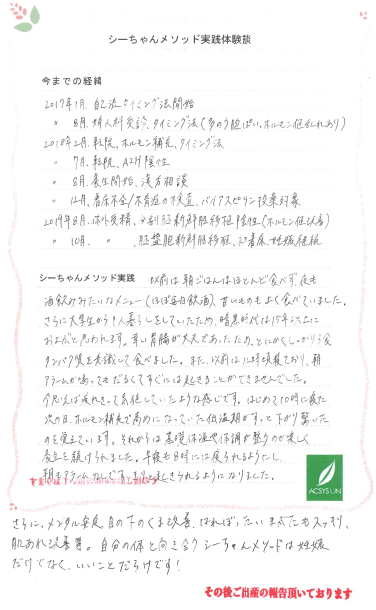 シーちゃんメソッド実践体験談
今までの経緯
2017年1月.自己流タイミング法開始
〃 8月.婦人科受診、タイミング法(多のう胞ぽい、ホルモン値乱れあり)
2018年2月.転院、ホルモン補充、タイミング法
〃 7月.転院、AIH陰性
〃 8月.養生開始、漢方相談
〃 12月.着床不全/不育症の検査、バイアスピリン投薬対象
2019年8月.体外受精、分割胚新鮮胚移植陰性(ホルモン値改善)
〃 10月. 〃 、胚盤胞新鮮胚移植、着床、妊娠継続
シーちゃんメソッド実践 以前は朝ごはんはほとんど食べず、夜も
酒飲みみたいなメニュー(ほぼ毎日飲酒)、甘いものもよく食べていました。
さらに大学生から1人暮らしをしていたため、暗黒時代は15年以上に
およぶと思われます。幸い胃腸が丈夫であったため、とにかくしっかり3食
タンパク質を意識して食べました。また、以前は12時頃寝ており、朝
アラームが鳴ってもだるくてすぐには起きることができませんでした。
今思えば疲れきって気絶していたような感じです。はじめて10時に寝た
次の日、ホルモン補充で高めになっていた低温期がすっと下がり驚いた
のを覚えています。それからは基礎体温や体調が整うのが楽しく
養生を続けられました。早寝も8時には寝られるようにし、
朝もアラームなしですっきり起きられるようになりました。
ACSYSUN
さらに、メンタル安定、目の下のくま改善、はれぼったいまぶたもスッキリ、
肌あれ改善等。自分の体と向き合うシーちゃんメソッドは妊娠
だけでなく、いいことだらけです!
その後ご出産の報告頂いております